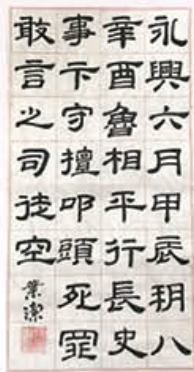 永興六月甲辰朔八
辛酉魯相平行長史
事卞守擅叩頭死罪
敢言之司徒空
業潔